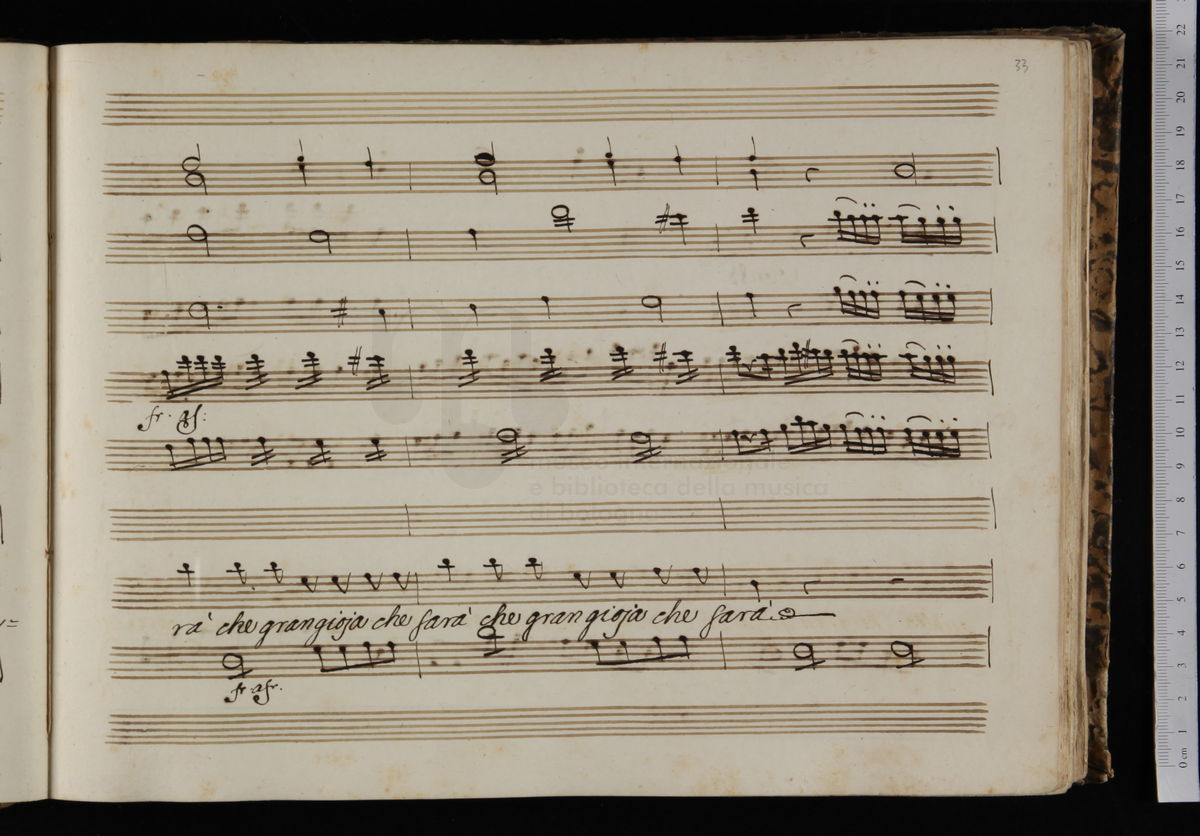 33
fr. assai:
rà che gran gioja che sarà che gran gioja che sarà.
fr. assai.
museo internazionale
e biblioteca della musica
di bologna
22
21
20
19
18
17
16
15
14
13
12
11
10
9
8
7
6
5
4
3
2
1
0 cm